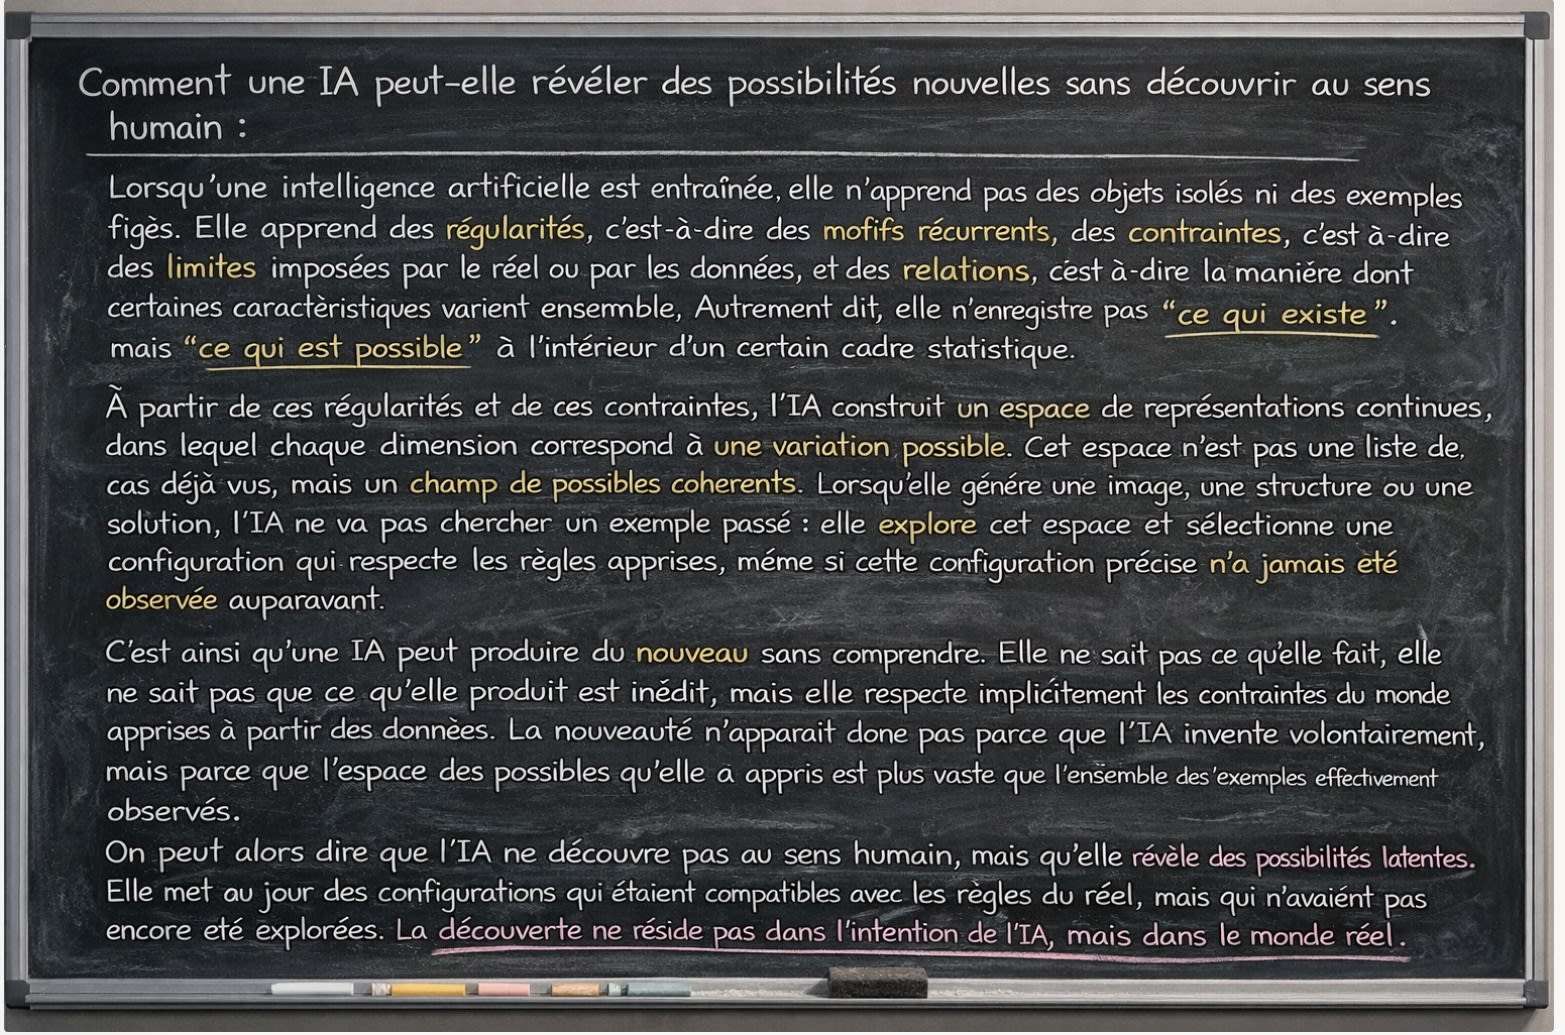 Comment une IA peut-elle révéler des possibilités nouvelles sans découvrir au sens
humain :
Lorsqu'une intelligence artificielle est entraînée, elle n'apprend pas des objets isolés ni des exemples
figès. Elle apprend des régularités, c'est-à-dire des mofifs récurrents, des contraintes, c'est à-dire
des limites imposées par le réel ou par les données, et des relations, c'est à-dire la maniére dont
certaines caractèristiques varient ensemble, Autrement dit, elle n'enregistre pas “ce qui existe”.
mais “ce qui est possible” à l'intérieur d'un certain cadre statistique.
Ã partir de ces régularités et de ces contraintes, l'IA construit un espace de représentations continues,
dans lequel chaque dimension correspond à une variation possible. Cet espace n'est pas une liste de,
cas déjà vus, mais un champ de possibles coherents. Lorsqu'elle génére une image, une structure ou une
solution, l'IA ne va pas chercher un exemple passé : elle explore cet espace et sélectionne une
configuration qui respecte les règles apprises, méme si cette configuration précise n'a jamais eté
observée auparavant.
C'est ainsi qu'une IA peut produire du nouveau sans comprendre. Elle ne sait pas ce qu'elle fait, elle
ne sait pas que ce qu'elle produit est inédit, mais elle respecte implicitement les contraintes du monde
apprises à partir des donnèes. La nouveauté n'apparait done pas parce que l'IA invente volontairement,
mais parce que l'espace des possibles qu'elle a appris est plus vaste que l'ensemble des'exemples effectivement
observés.
On peut alors dire que l'IA ne découvre pas au sens humain, mais qu'elle révèle des possibilités latentes.
Elle met au jour des configurations qui étaient compatibles avec les règles du réel, mais qui n'avaiént pas
encore eté explorées. La découverte ne réside pas dans l'intention de l'IA, mais dans le monde réel.